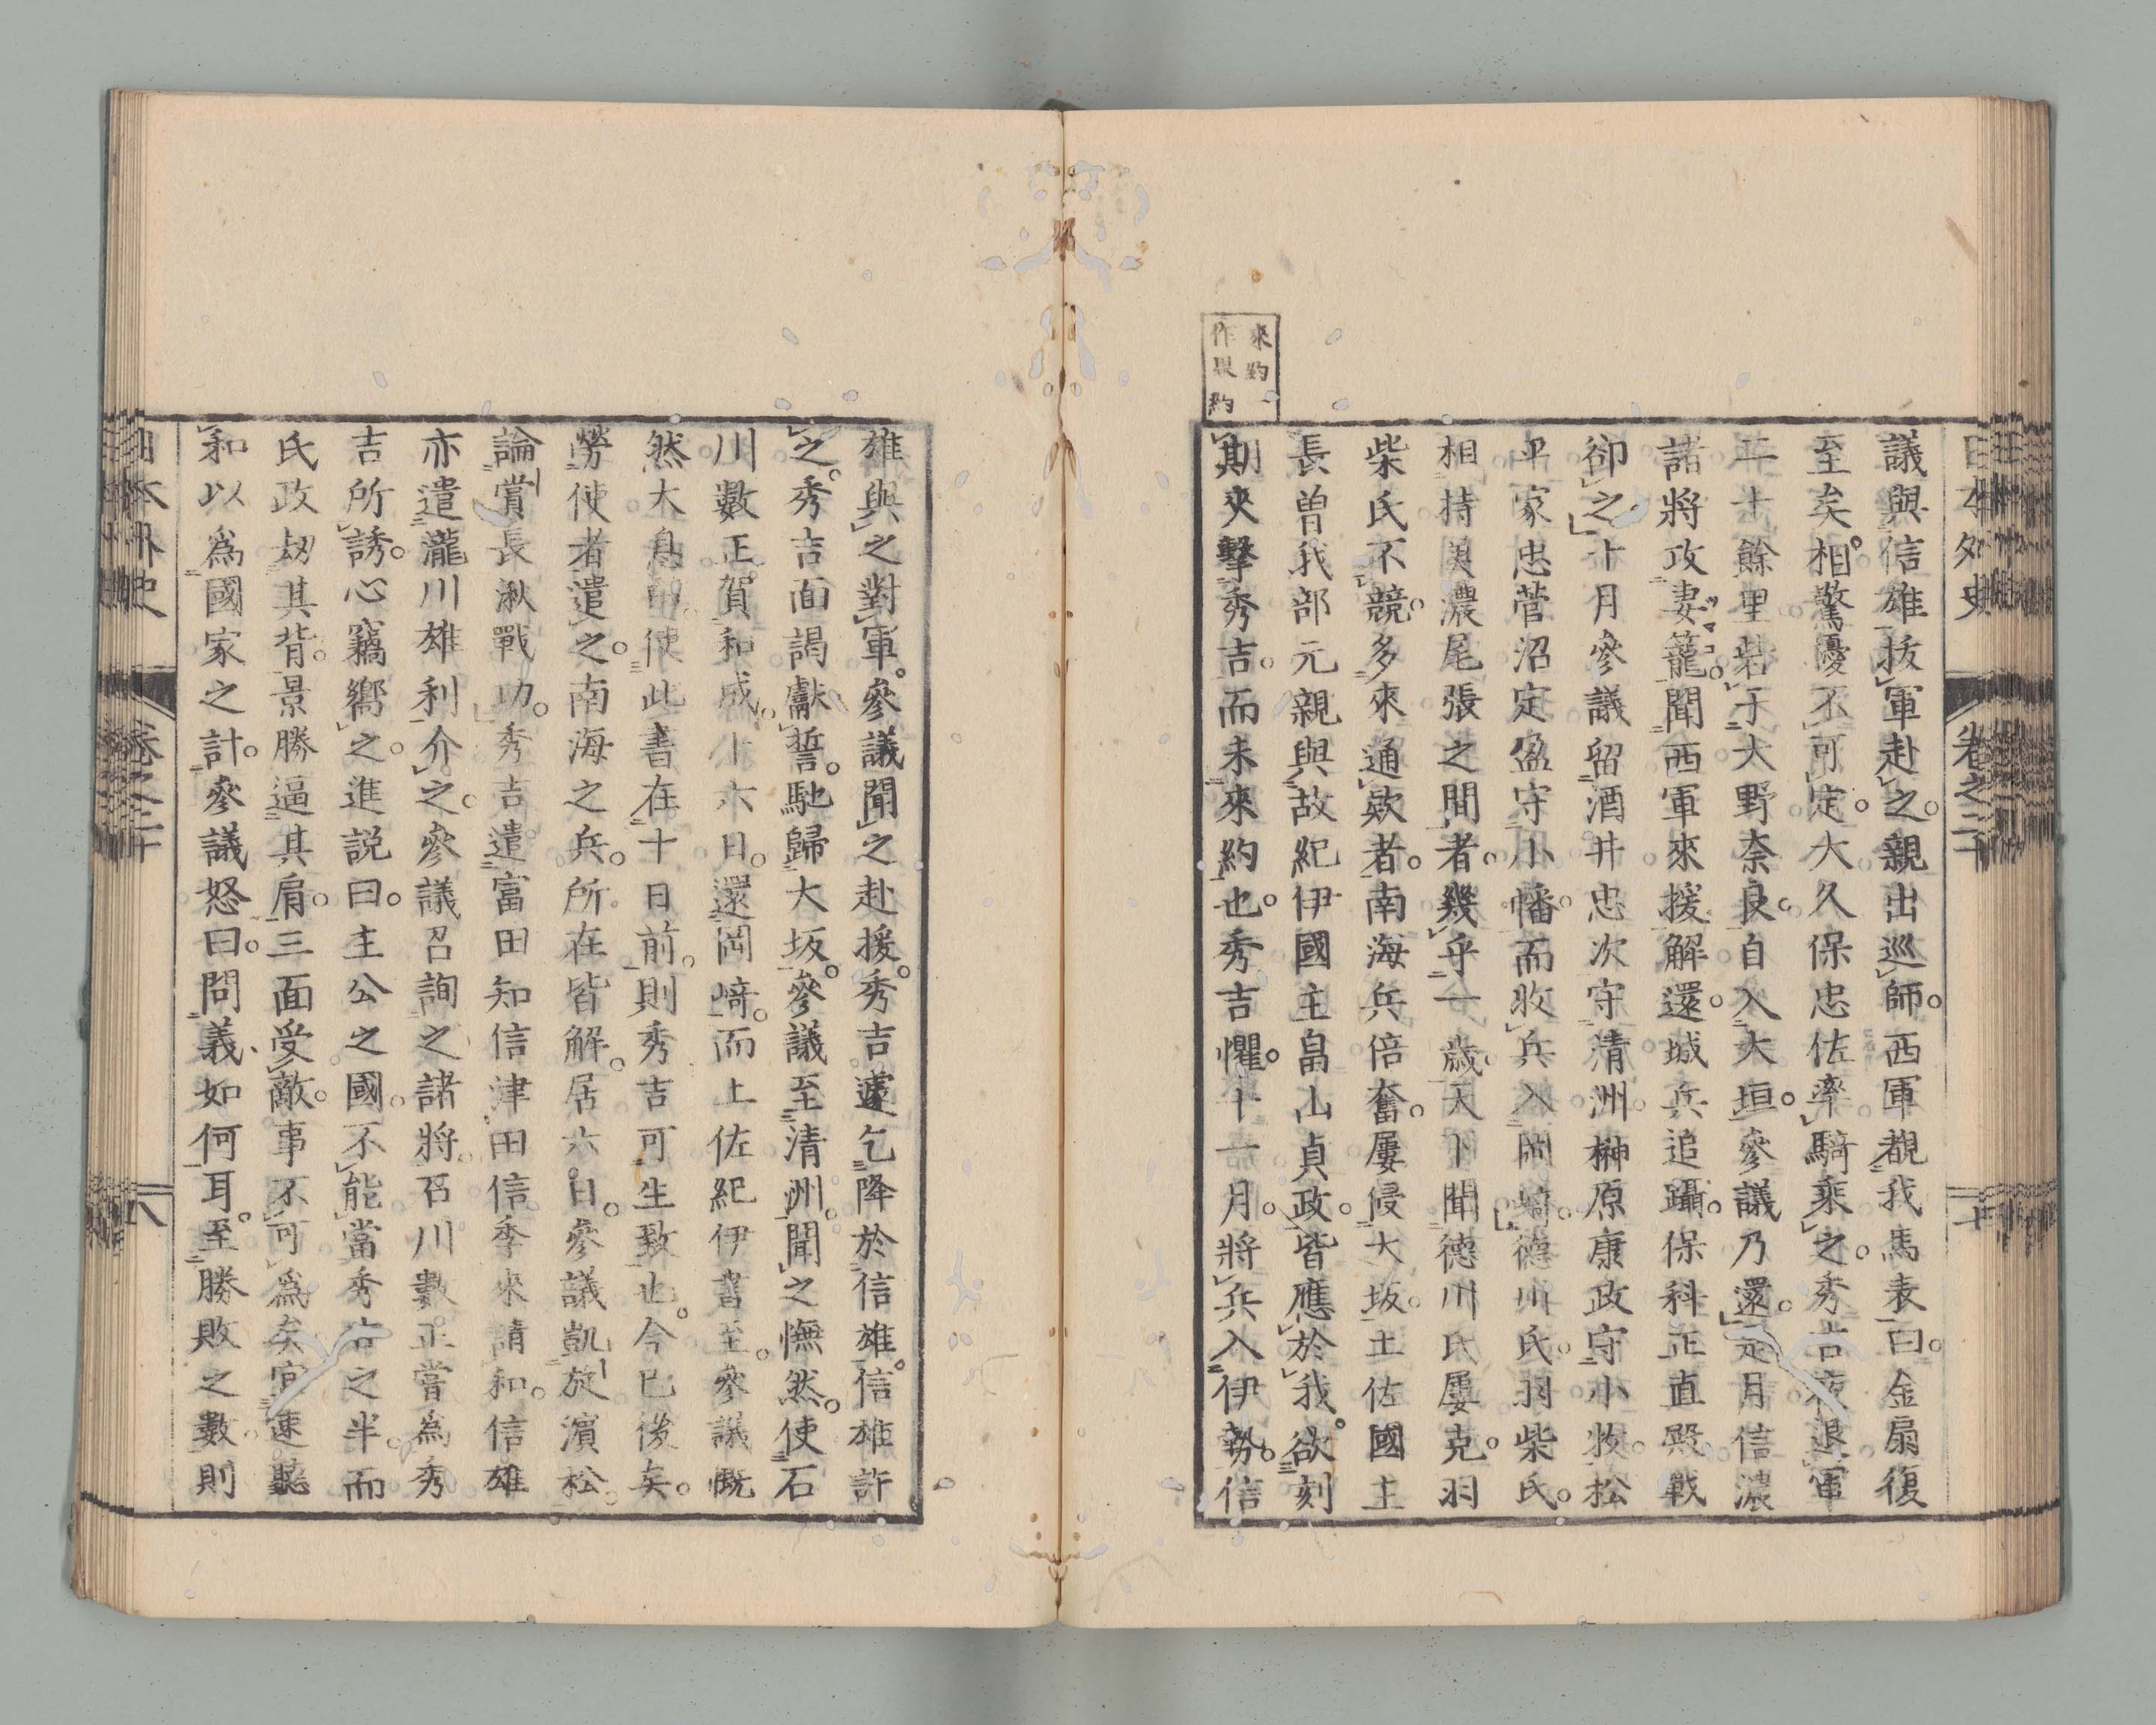 日本外史
卷之二十
議與信雄拔軍赴之。親出巡師。西軍覩我馬表曰。金扇復
至矣。相驚擾不可定。大久保忠佐率騎乘之。秀吉夜退軍
二十餘里。砦于大野奈良。自入大垣。參議乃還。是月信濃
諸將攻妻籠。聞西軍來援解還。城兵追躡。保科正直殿戰
卻之。十月參議留酒井忠次守清洲。榊原康政守小牧。松
平家忠菅沼定盈守小幡。而收兵入岡崎。德川氏。羽柴氏。
相持美濃尾張之間者。幾乎一歲。天下聞德川氏屢克。羽
柴氏不競。多來通欵者。南海兵倍奮。屢侵大坂。土佐國主
長曾我部元親與故紀伊國主畠山貞政。皆應於我。欲刻
期夾擊秀吉。而未來約也。秀吉懼。十一月。將兵入伊勢。信
來約一
作果約
雄與之對軍。參議聞之赴援。秀吉遽乞降於信雄。信雄許
之。秀吉面謁獻誓。馳歸大坂。參議至清洲。聞之憮然。使石
川數正賀和成。十六日。還岡崎。而土佐紀伊書至。參議慨
然大息曰。使此書在十日前。則秀吉可生致也。今已後矣。
勞使者遣之。南海之兵。所在皆解。居六日。參議凱旋濱松。
論賞長湫戰功。秀吉遣富田知信津田信季來請和。信雄
亦遣瀧川雄利介之。參議召詢之諸將。石川數正嘗為秀
吉所誘。心竊嚮之。進説曰。主公之國。不能當秀吉之半。而
氏政刼其背。景勝逼其肩。三面受敵。事不可為矣。宜速聽
和以為國家之計。參議怒曰。問義如何耳。至勝敗之數。則
日本外史
卷之二十
八